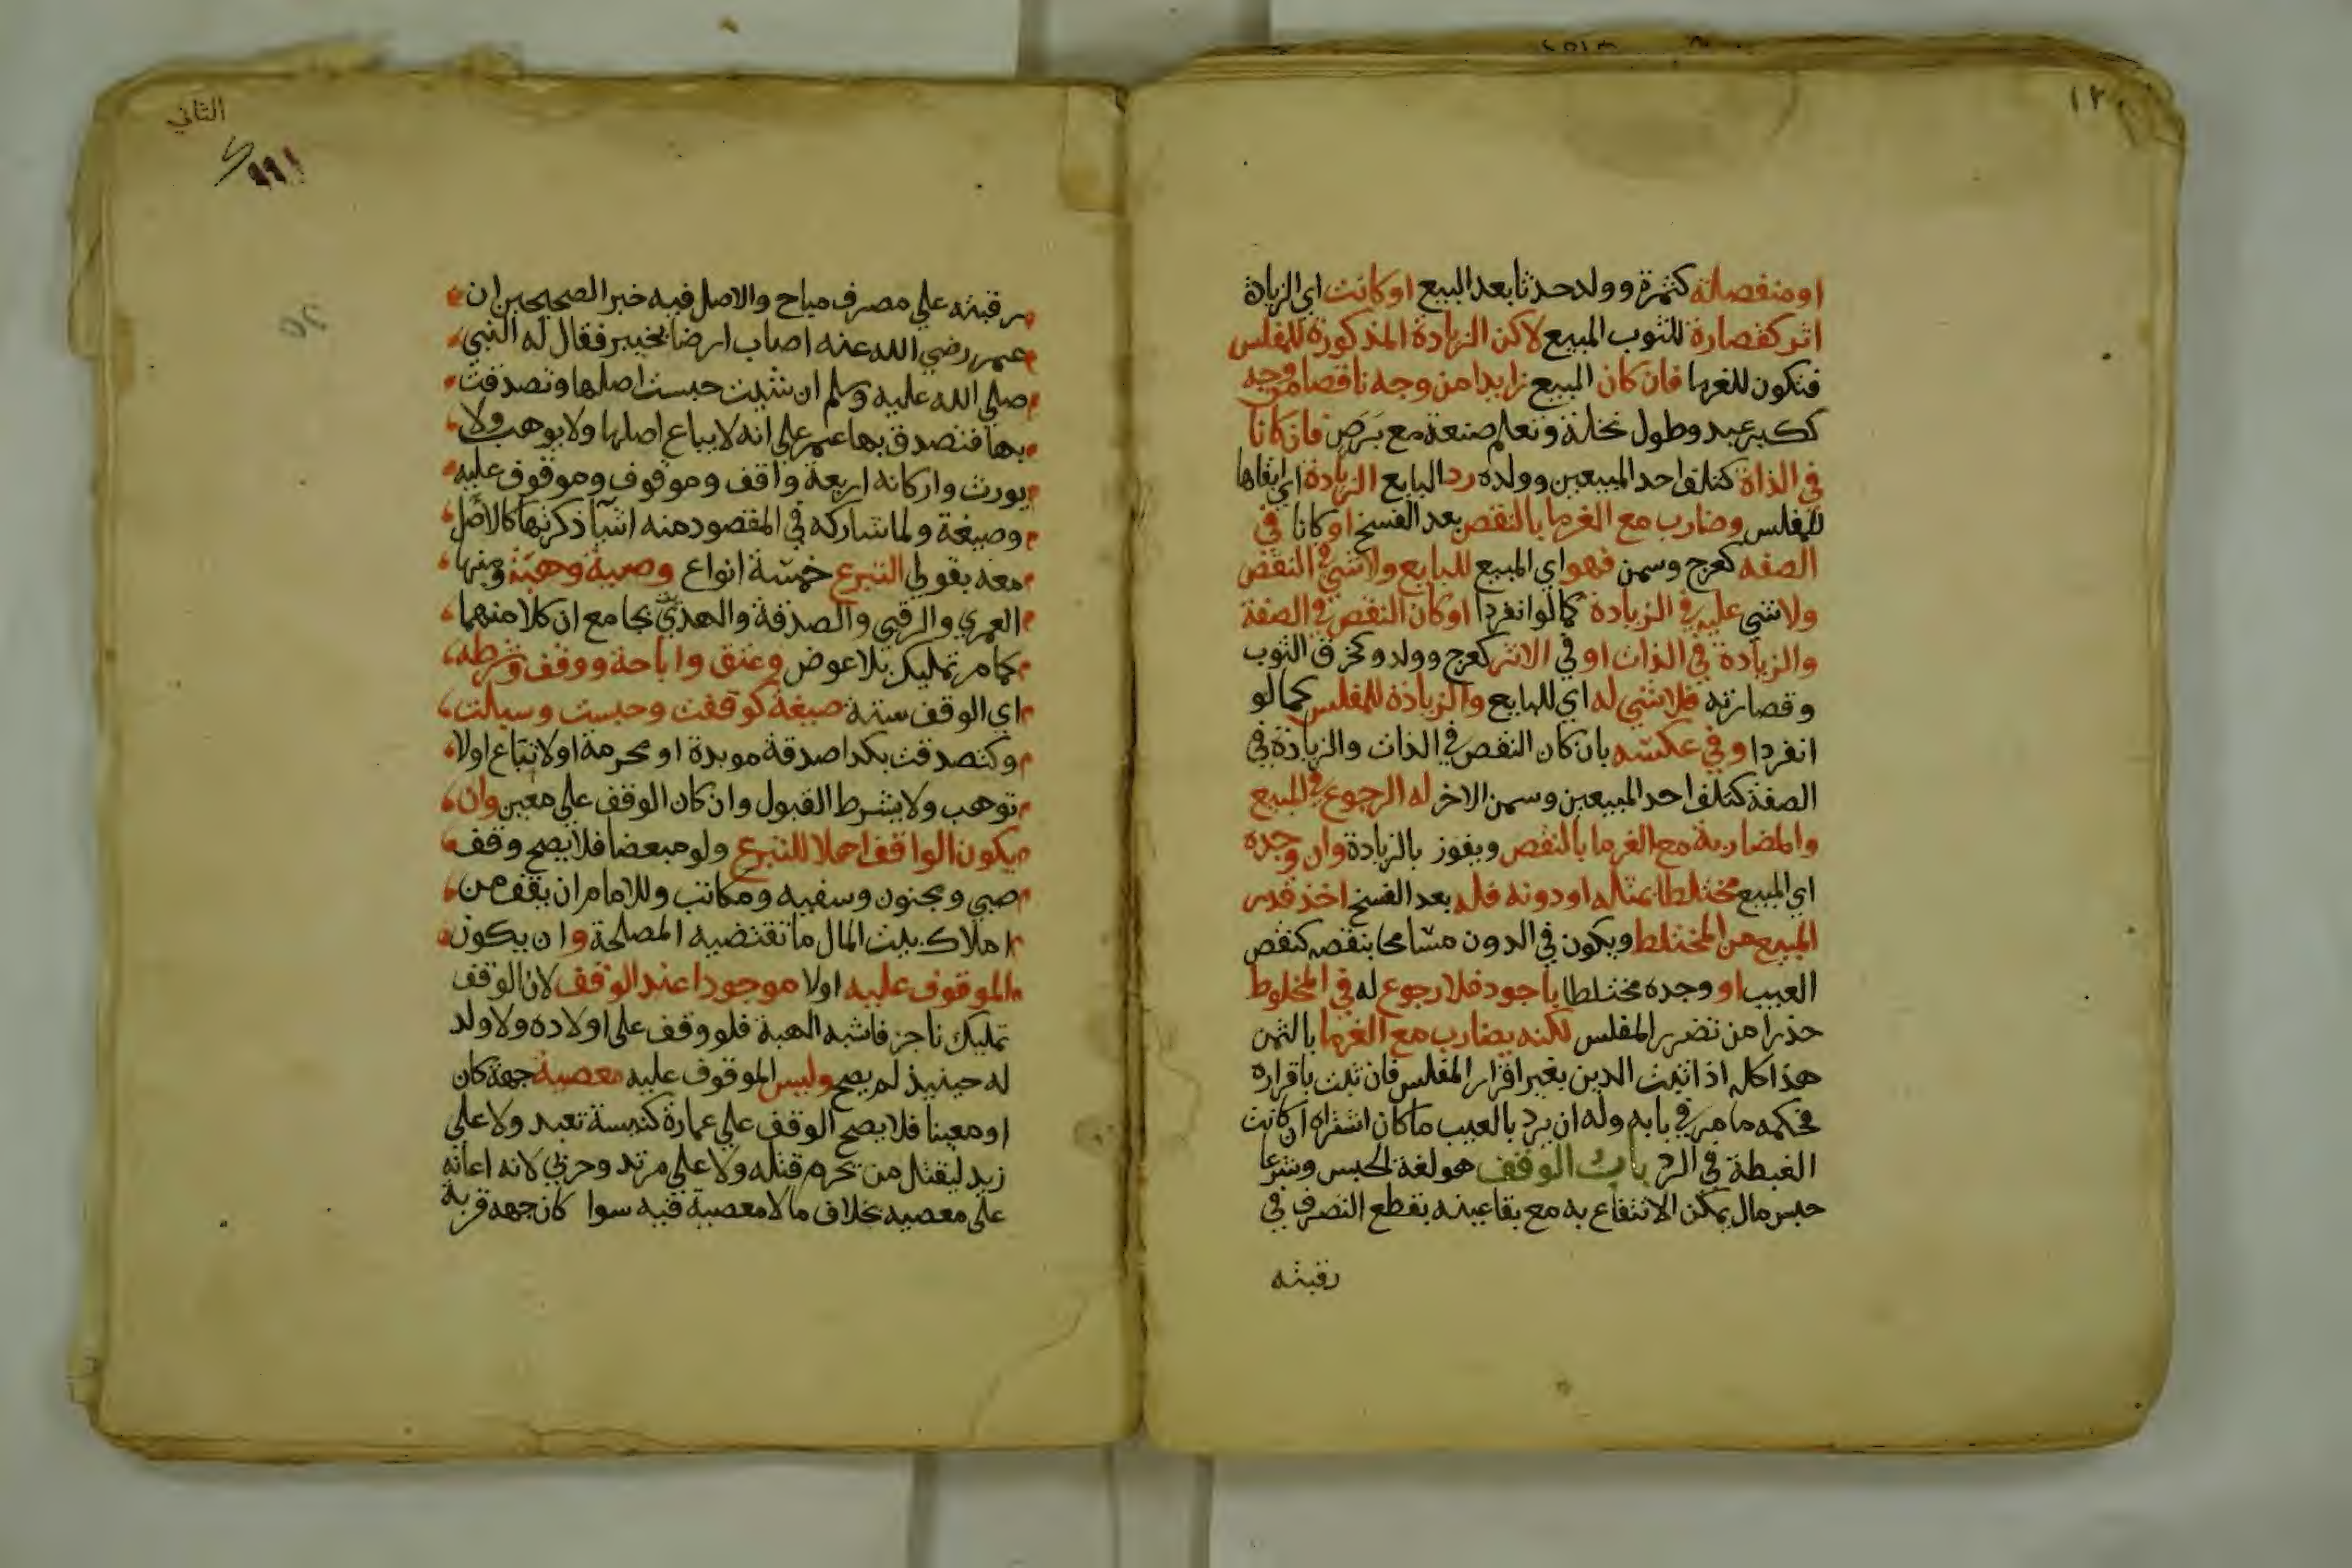 او منفصلة كثمرة وولد حدثا بعد البيع او كانت اي الزيادة
اثر كقصارة للثوب المبيع لاكن الزيادة المذكورة للمفلس
فتكون للغرما فان كان المبيع زايدا من وجه ناقصا من وجه
ككبر عبد وطول نخلة وتعلم صنعة مع برص فان كانا
في الذاة كتلف احد المبيعين وولده رد البايع الزيادة اي ابقاها
للمفلس وضارب مع الغرما بالنقص بعد الفسخ او كانا في
الصفه كعرج وسمن فهو اي المبيع للبايع ولا شي في النقص
ولا شي عليه في الزيادة كما لو انفردا او كان النقص في الصفة
والزيادة في الذات او في الاثر كعرج وولد وكخرق الثوب
وقصارته فلا شي له اي للبايع والزيادة للمفلس كما لو
انفردا وفي عكسه بان كان النقص في الذات والزيادة في
الصفة كتلف احد المبيعين وسمن الاخر له الرجوع في المبيع
والمضاربة مع الغرما بالنقص ويفوز بالزيادة وان وجده
اي المبيع مختلطا بمثله او دونه فله بعد الفسخ اخذ قدر
المبيع من المختلط ويكون في الدون مسامحا بنقصه كنقص
العيب او وجده مختلطا باجود فلا رجوع له في المخلوط
حذرا من تضرر المفلس لكنه يضارب مع الغرما بالثمن
هذا كله اذا ثبت الدين بغير اقرار المفلس فان ثبت باقراره
فحكمه ما مر في بابه وله ان يرد بالعيب ما كان اشتراه ان كانت
الغبطة في الرد باب الوقف هو لغة الحبس وشرعا
حبس مال يمكن الانتفاع به مع بقا عينه بقطع التصرف في
رقبته
الثاني
رقبته على مصرف مباح والاصل فيه خبر الصحيحين ان
عمر رضي الله عنه اصاب ارضا بخيبر فقال له النبي
صلى الله عليه وسلم ان شيت حبست اصلها وتصدقت
بها فتصدق بها عمر على انه لا يباع اصلها ولا يوهب ولا
يورث واركانه اربعة واقف وموقوف وموقوف عليه
وصيغة ولما شاركه في المقصود منه اشيا ذكرتها كالاصل
معه بقولي التبرع خمسة انواع وصية وهبة ومنها
العمري والرقبى والصدقة والهدية بجامع ان كلا منهما
كما مر تمليك بلا عوض وعتق واباحة ووقف وشرطه
اي الوقف ستة صيغة كوقفت وحبست وسبلت
وكتصدقت بكدا صدقة موبدة او محرمة او لا تباع او لا
توهب ولا يشرط القبول وان كان الوقف على معين وان
يكون الواقف اهلا للتبرع ولو مبعضا فلا يصح وقف
صبي ومجنون وسفيه ومكاتب وللامام ان يقف من
املاك بيت المال ما تقتضيه المصلحة وان يكون
الموقوف عليه اولا موجودا عند الوقف لان الوقف
تمليك ناجز فاشبه الهبة فلو وقف على اولاده ولا ولد
له حينيذ لم يصح وليس الموقوف عليه معصية جهة كان
او معينا فلا يصح الوقف على عمارة كنيسة تعبد ولا على
زيد ليقتل من تحرم قتله ولا على مرتد وحربي لانه اعانه
على معصيه بخلاف ما لا معصية فيه سوا كان جهه قربة